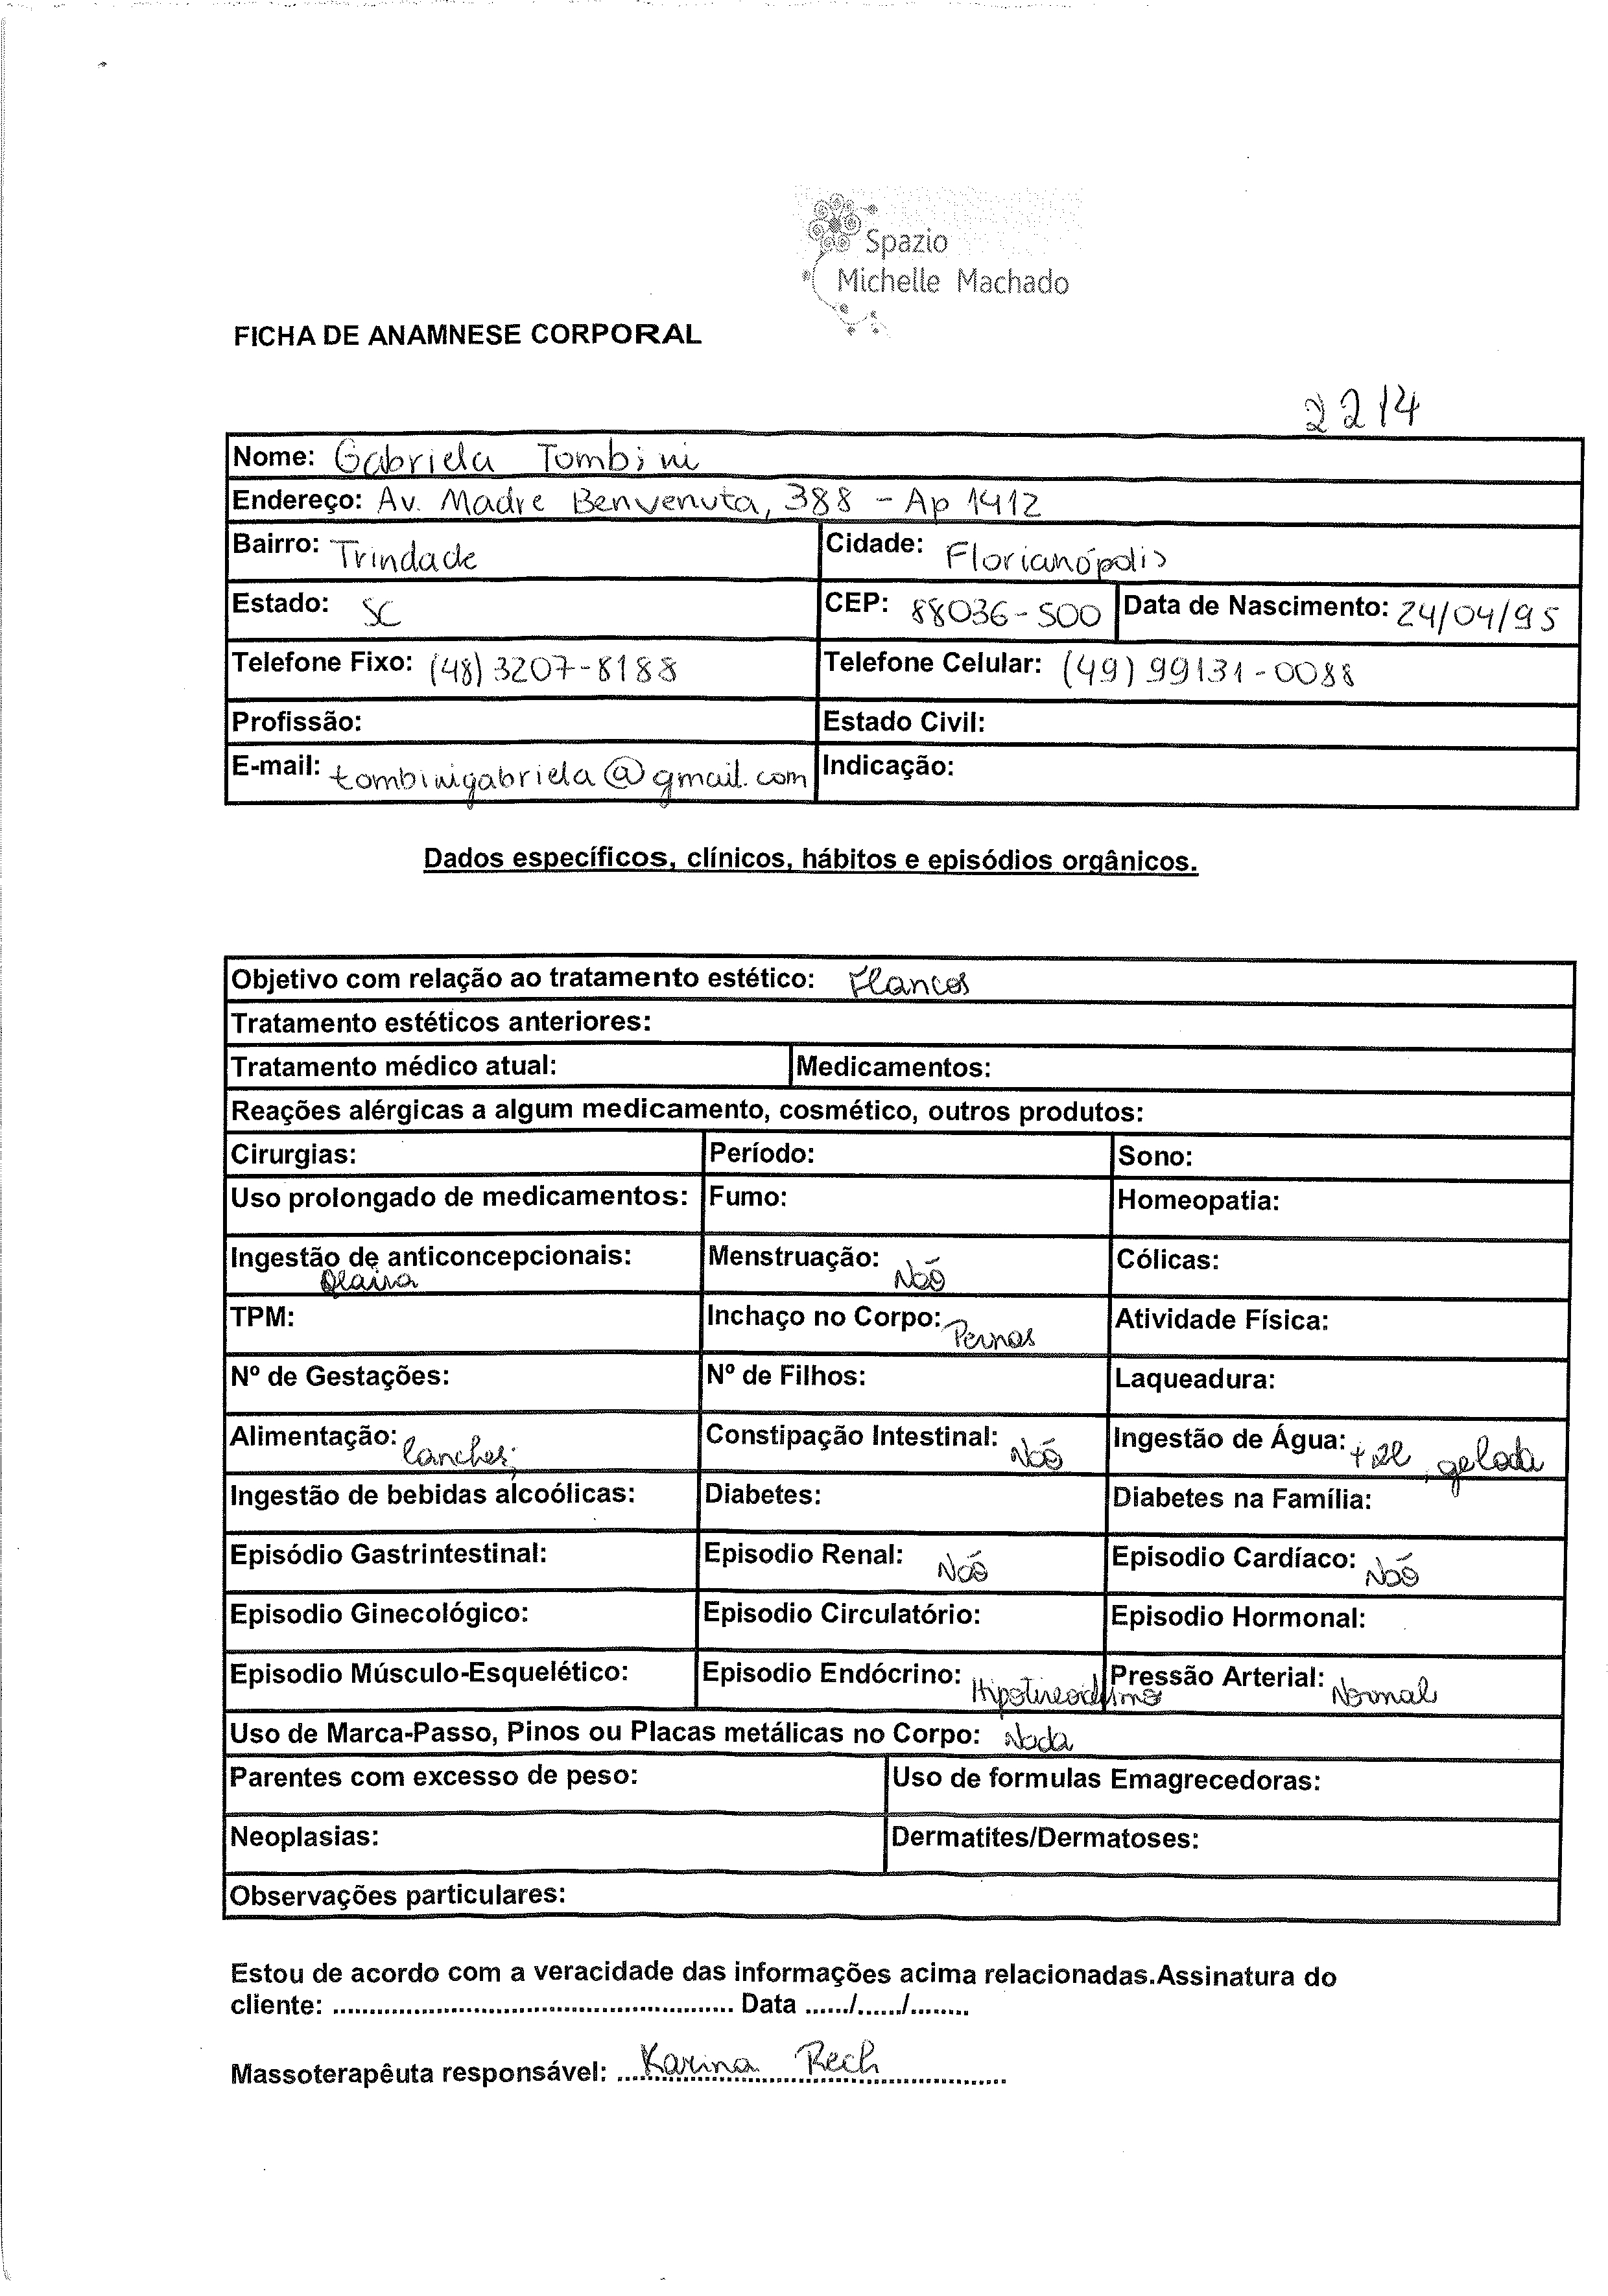 Spazio
Michelle Machado
FICHA DE ANAMNESE CORPORAL
2214
Nome: Gabriela Tombini
Endereço: Av. Madre Benvenuta, 388 - Ap 1412
Bairro: Trindade Cidade: Florianópolis
Estado: SC CEP: 88036-500 Data de Nascimento: 24/04/95
Telefone Fixo: (48) 3207-8188 Telefone Celular: (49) 99131-0088
Profissão: Estado Civil:
E-mail: tombinigabriela@gmail.com Indicação:
Dados específicos, clínicos, hábitos e episódios orgânicos.
Objetivo com relação ao tratamento estético: Flancos
Tratamento estéticos anteriores:
Tratamento médico atual: Medicamentos:
Reações alérgicas a algum medicamento, cosmético, outros produtos:
Cirurgias: Período: Sono:
Uso prolongado de medicamentos: Fumo: Homeopatia:
Ingestão de anticoncepcionais: Menstruação: Não Cólicas:
TPM: Inchaço no Corpo: Pernas Atividade Física:
Nº de Gestações: Nº de Filhos: Laqueadura:
Alimentação: lanches; Constipação Intestinal: Não Ingestão de Água: + 2l, gelada
Ingestão de bebidas alcoólicas: Diabetes: Diabetes na Família:
Episódio Gastrintestinal: Episodio Renal: Não Episodio Cardíaco: Não
Episodio Ginecológico: Episodio Circulatório: Episodio Hormonal:
Episodio Músculo-Esquelético: Episodio Endócrino: Hipotireoidismo Pressão Arterial: Normal
Uso de Marca-Passo, Pinos ou Placas metálicas no Corpo: Nada
Parentes com excesso de peso: Uso de formulas Emagrecedoras:
Neoplasias: Dermatites/Dermatoses:
Observações particulares:
Estou de acordo com a veracidade das informações acima relacionadas.Assinatura do
cliente: ........................................................ Data ....../....../........
Massoterapêuta responsável: Karina Rech